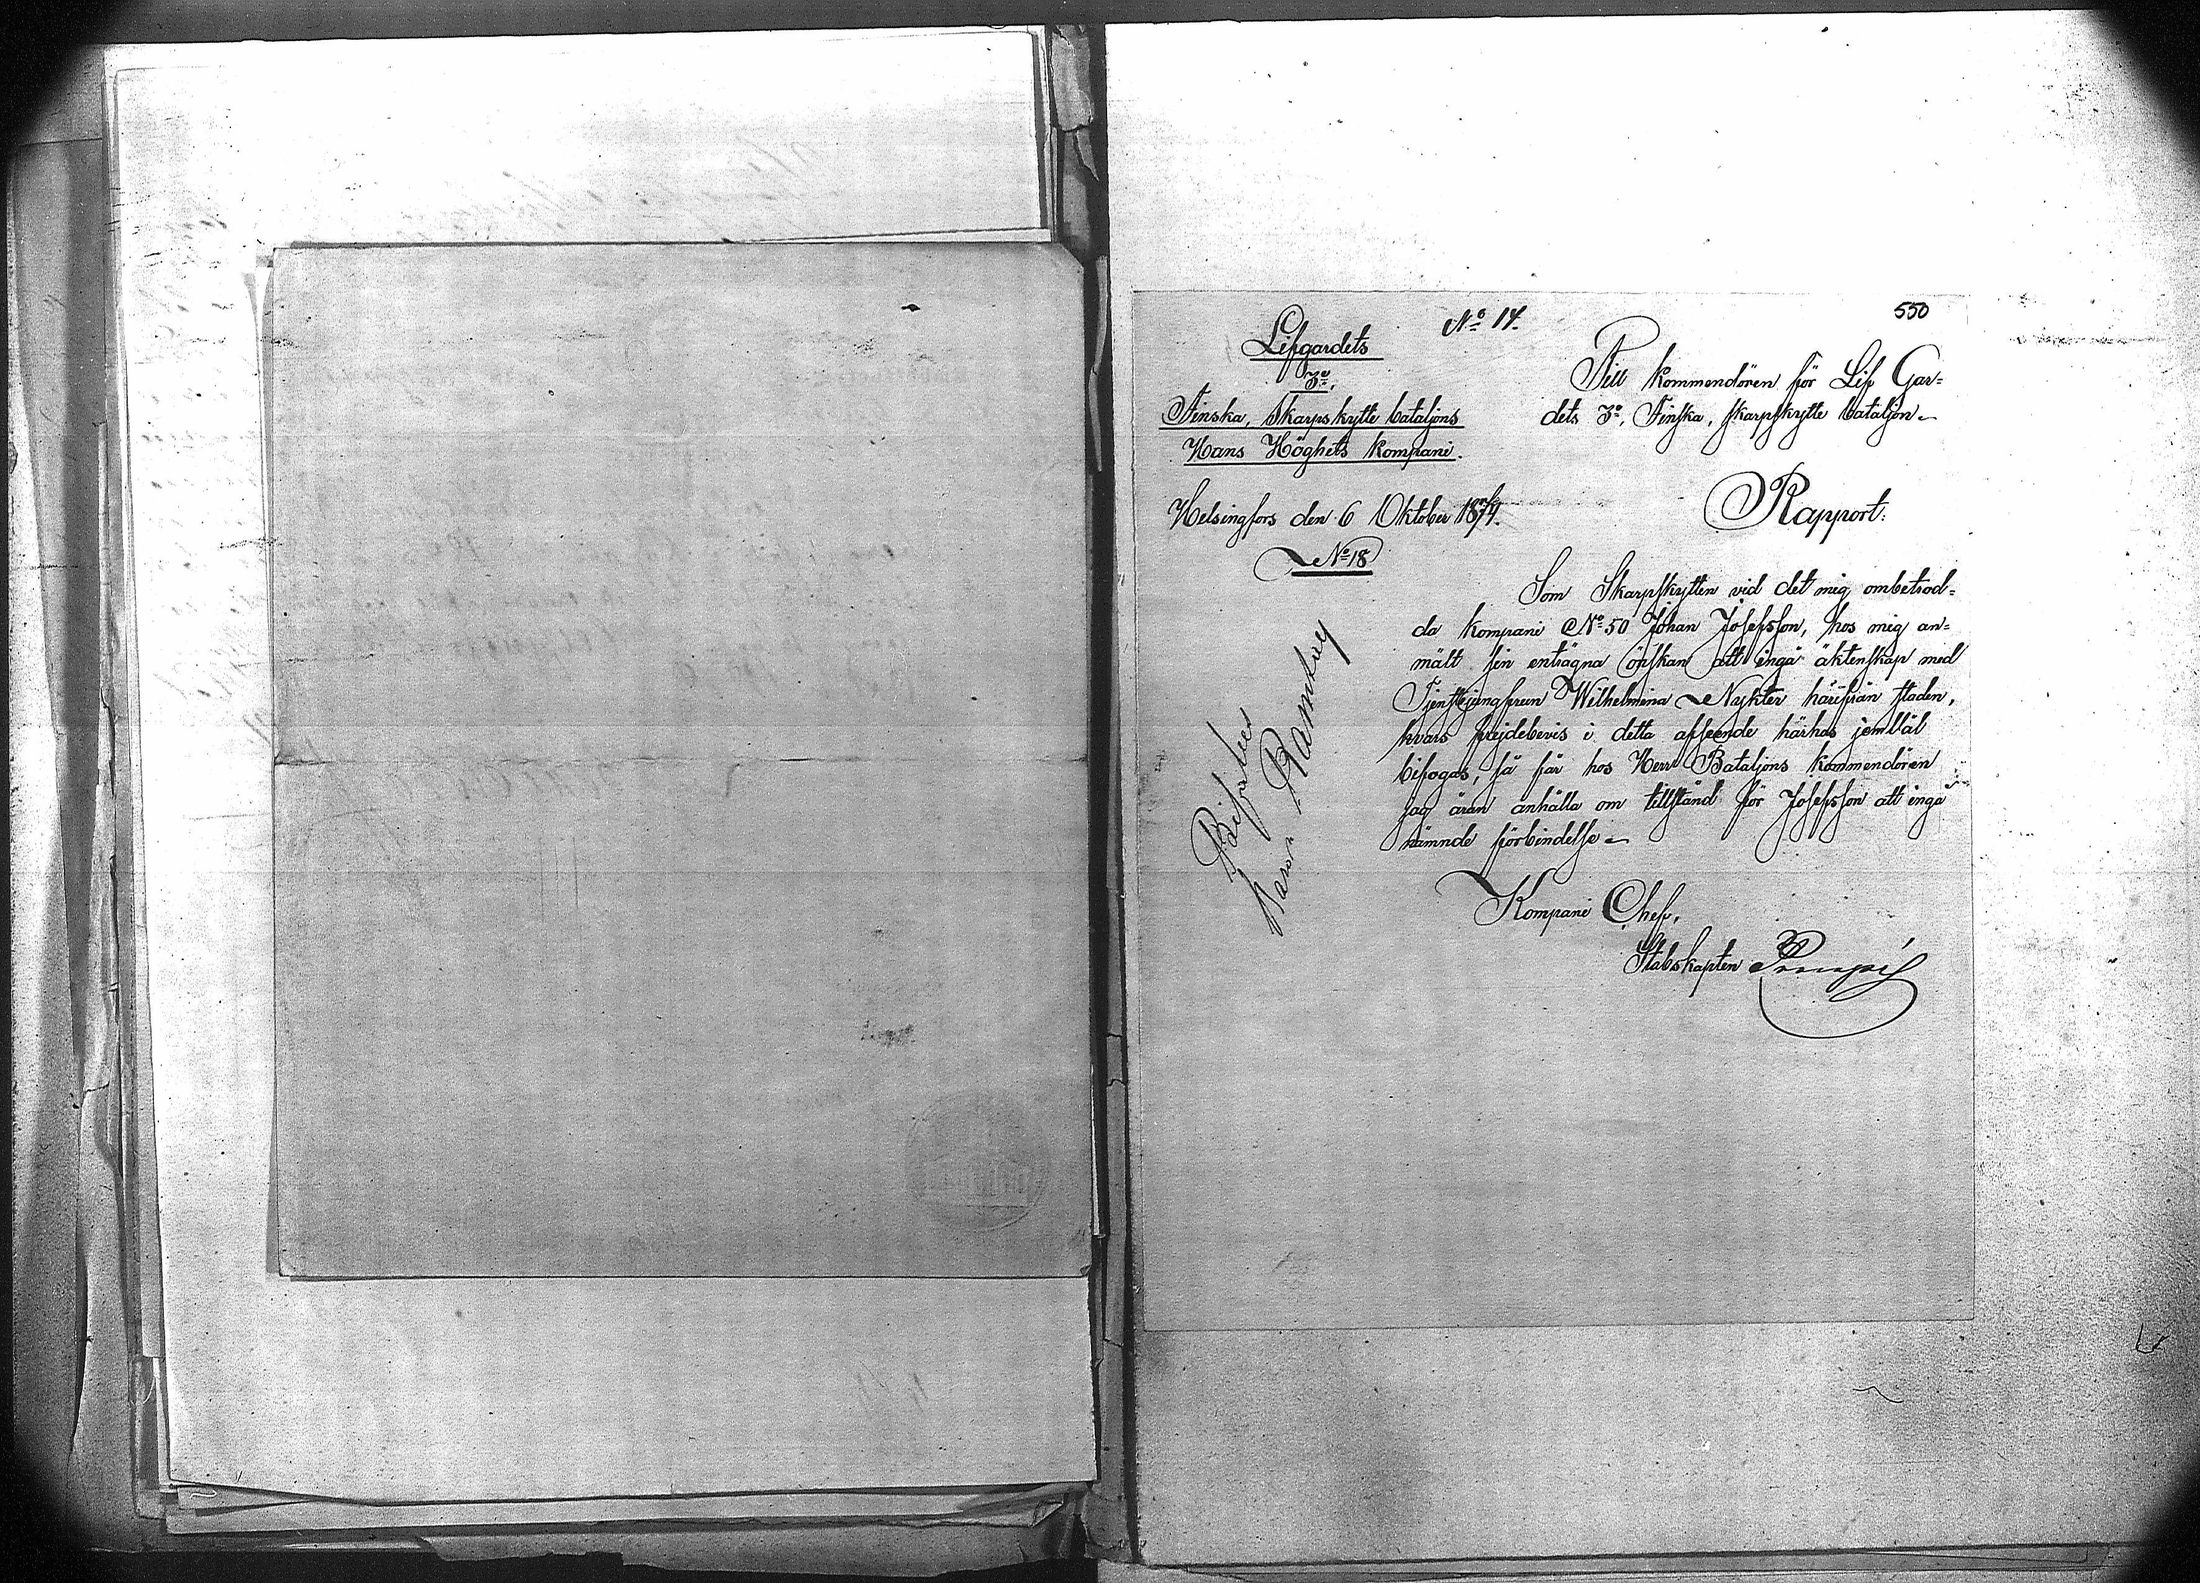 550
No 14.
Lifgardets
3e.
Finska, Skarpskytte bataljons
Hans Höghets kompani.
Helsingfors den 6 Oktober 1874.
No 18
Till kommendören för Lif Gar=
dets 3e, Finska, skarpskytte bataljon.
Rapport:
Som Skarpskytten vid det mig ombetrod=
da kompani No 50 Johan Josefsson, hos mig an=
mält sin enträgna önskan att ingå äktenskap med
Tjenstejungfrun Wilhelmina Nykter härifrån staden,
hvars frejdebevis i detta afseende härhos jemväl
bifogas, så får hos Herr Bataljons kommendören
jag äran anhålla om tillstånd för Josefsson att ingå
nämnde förbindelse
Kompani Chef,
Stabskapten
Bifalles
Baron Ramsay